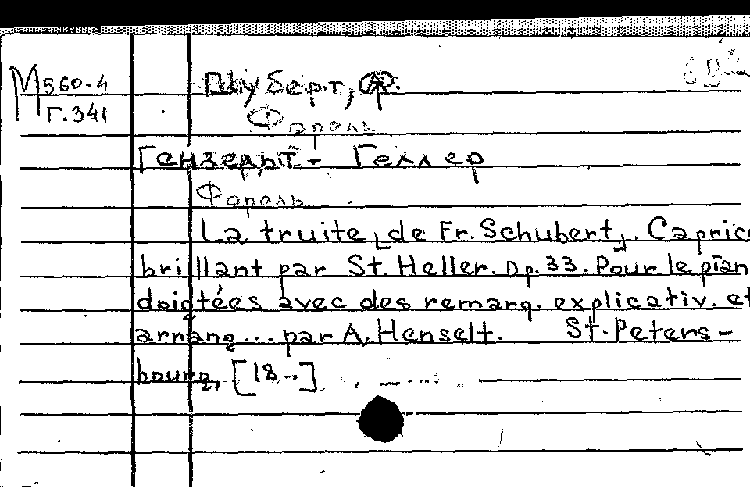 М560-4
Г.341
Шуберт, Фр.
Форель
Гензельт - Геллер
Форель
La truite [de Fr. Schubert]. Capric
brillant par St. Heller. Op. 33. Pour le pian
doigtées avec des remarq. explicativ. et
arrang... par A. Henselt. St.-Peters-
bourg, [18--]